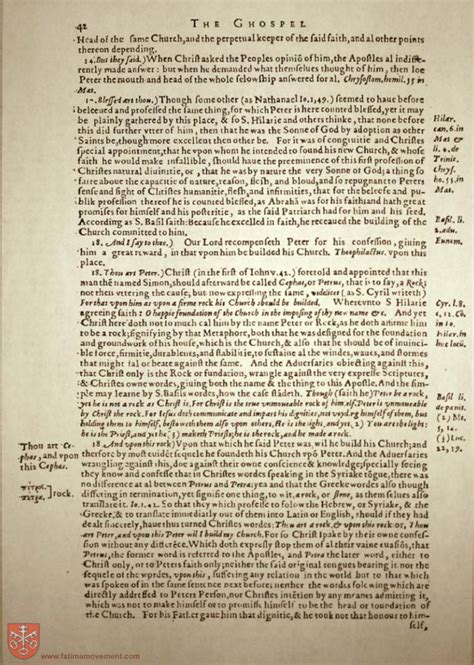 42
THE GHOSPEL
Head of the same Church, and the perpetual keeper of the said faith, and al other points
thereon depending.
14. But they said.) When Christ asked the Peoples opiniō of him, the Apostles al indiffe-
rently made answer: but when he demanded what themselues thought of him, then loe
Peter the mouth and head of the whole felowship answered for al, Chrysostom, homil. 55 in
Mat.
Blessed art thou.) Though some other (as Nathanael Io. 1, 49.) seemed to haue before
beleeued and professed the same thing, for which Peter is here counted blessed, yet it may
be plainly gathered by this place, & so S. Hilarie and others thinke, that none before
this did further vtter of him, then that he was the Sonne of God by adoption as other
Saints be, though more excellent then other be. For it was of congruitie and Christes
special appointment, that he vpon whom he intended to found his new Church, & whose
faith he would make infallible, should haue the preeminence of this first profession of
Christes natural diuinitie, or, that he was by nature the very Sonne of God; a thing so
farre aboue the capacitie of nature, reason, flesh, and bloud, and so repugnant to Peters
sense and sight of Christes humanitie, flesh, and infirmities, that for the beleefe and pu-
blik profession thereof he is counted blessed, as Abrahā was for his faith: and hath great
promises for himself and his posteritie, as the said Patriarch had for him and his seed.
According as S. Basil saith: Because he excelled in faith, he receaued the building of the
Church committed to him.
Hilar.
can. 6. in
Mat. &
li. 6. de
Trinit.
Chrys.
ho. 55. in
Mat.
Basil. li.
2. adu.
Eunom.
18. And I say to thee.) Our Lord recompenseth Peter for his confession, giuing
him a great reward, in that vpon him he builded his Church. Theophilactus vpon this
place.
18. Thou art Peter.) Christ (in the first of Iohn v. 42.) foretold and appointed that this
man then named Simon, should afterward be called Cephas, or Petrus, that is to say, a Rocke,
not then vttering the cause, but now expressing the same, videlicet (as S. Cyril writeth)
For that vpon him as vpon a firme rock his Church should be builded. Whereunto S. Hilarie
agreeing saith: O happie foundation of the Church in the imposing of thy new name &c. And yet
Christ here doth not so much cal him by the name Peter or Rock, as he doth affirme him
to be a rock; signifying by that Metaphor, both that he was designed for the foundation
and groundworke of his house, which is the Church; & also that he should be of inuinci-
ble force, firmitie, durablenes, and stabilitie, to sustaine al the windes, waues, and stormes
that might fal or beate against the same. And the Aduersaries obiecting against this,
that Christ only is the Rock or foundation, wrangle against the very expresse Scriptures,
& Christes owne wordes, giuing both the name & the thing to this Apostle. And the sim-
ple may learne by S. Basils wordes, how the case standeth. Though (saith he) Peter be a rock,
yet he is not a rock as Christ is. For Christ is the true vnmoueable rock of himself, Peter is vnmoue-
able by Christ the rock. For Iesus doth communicate and impart his dignities, not voyding himself of them, but
holding them to himself, bestoweth them also vpon others. He is the light, and yet, (2) You are the light:
he is the Priest, and yet he (3) maketh Priests; he is the rock, and he made a rock.
Cyr. l. 2.
c. 12. Co
in Io.
Hilar. in
hunc locū.
Basil li.
de pœnit.
(2) Mt.
5, 14.
(3) Luc.
22, 19.
18. And vpon this rock.) Vpon that which he said Peter was, wil he build his Church; and
therfore by most euidēt sequele he foundeth his Church vpō Peter. And the Aduersaries
wrangling against this, doe against their owne conscience & knowledge; specially seeing
they know and confesse that in Christes wordes speaking in the Syriake tōgue, there was
no difference at al betwen Petrus and Petra; yea and that the Greeke wordes also though
differing in termination, yet signifie one thing, to wit, a rock, or stone, as them selues also
translate it. Io. 1, 42. So that they which professe to folow the Hebrew, or Syriake, & the
Greeke, & to translate immediatly out of them into Latin or English, should if they had
dealt sincerely, haue thus turned Christes wordes: Thou art a rock, & vpon this rock: or, Thou
art Peter, and vpon this Peter wil I build my Church. For so Christ spake by their owne confes-
sion without any differēce. Which doth expresly stop them of al their vaine euasiōs, that
Petrus, the former word is referred to the Apostle, and Petra the later word, either to
Christ only, or to Peters faith only; neither the said original tongues bearing it: nor the
sequele of the wordes, vpon this, suffering any relation in the world but to that which
was spoken of in the same sentence next before; neither the wordes folowing which are
directly addressed to Peters Person, nor Christes intention by any meanes admitting it,
which was not to make himself or to promise himself to be the head or foundation of
the Church. For his Father gaue him that dignitie, and he tooke not that honour to him-
self,
Thou art Ce-
phas, and vpon
this Cephas.
πέτρος
πέτρα. } rock.
www.fatimamovement.com